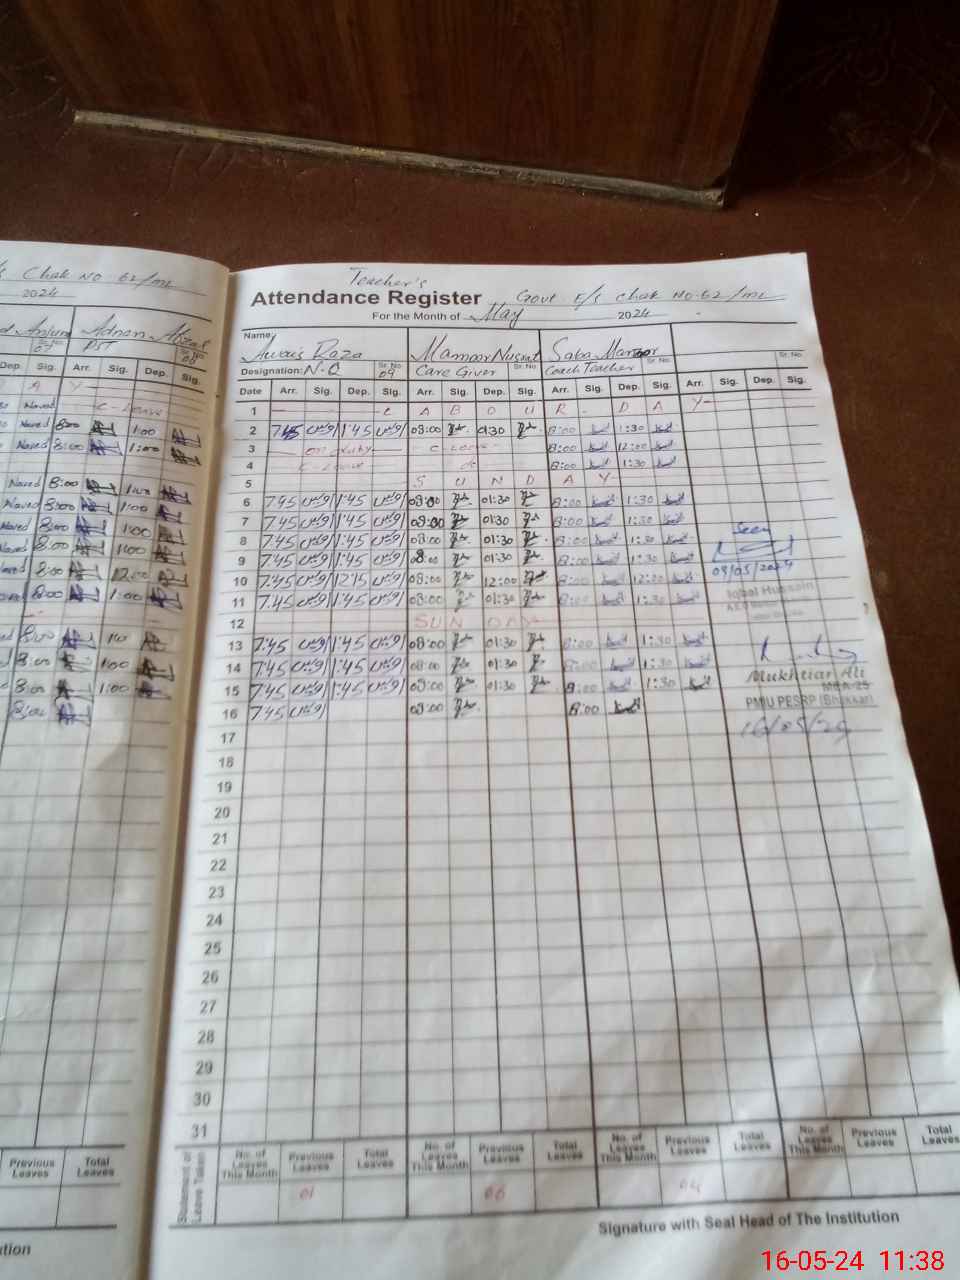 Chak NO 62/ML
2024
Anjum Adnan Afzal
Sr. No. 07 PST Sr. No. 08
Dep. Sig. Arr. Sig. Dep. Sig.
A Y
Naved C-Leave
Naved 8:00 1:00
Naved 8:00 1:00
Naved 8:00 1:00
Naved 8:00 1:00
Naved 8:00 1:00
Naved 8:00 1:00
Naved 8:00 12:00
8:00 1:00
8:00
8:00 1:00
8:00 1:00
8:00
Previous Leaves Total Leaves
Teacher's
Attendance Register Govt E/S Chak NO.62/ML
For the Month of May 2024
Name: Awais Raza Saba
Designation: N-Q Sr. No. 09 Care Giver Sr. No. Coach Teacher Sr. No. Sr. No.
Date Arr. Sig. Dep. Sig. Arr. Sig. Dep. Sig. Arr. Sig. Dep. Sig. Arr. Sig. Dep. Sig.
1 L A B O U R - D A Y
2 7:45 1:45 08:00 01:30 8:00 1:30
3 on duty C-Leave 8:00 12:00
4 C-Leave do 8:00 1:30
5 S U N D A Y
6 7:45 1:45 08:00 01:30 8:00 1:30
7 7:45 1:45 08:00 01:30 8:00 1:30
8 7:45 1:45 08:00 01:30 8:00 1:30
Seen
9 7:45 1:45 08:00 01:30 8:00 1:30
09/05/2024
10 7:45 12:15 08:00 12:00 8:00 12:00
Iqbal Hussain
11 7:45 1:45 08:00 01:30 8:00 1:30
12 SUN DAY
13 7:45 1:45 08:00 01:30 8:00 1:30
14 7:45 1:45 08:00 01:30 8:00 1:30
Mukhtiar Ali
15 7:45 1:45 08:00 01:30 8:00 1:30
MEA-25
16 7:45 08:00 8:00
PMIU PESRP (Bhakkar)
16/05/24
17
18
19
20
21
22
23
24
25
26
27
28
29
30
31
Statement of Leave Taken
No. of Leaves This Month Previous Leaves Total Leaves No. of Leaves This Month Previous Leaves Total Leaves No. of Leaves This Month Previous Leaves Total Leaves No. of Leaves This Month Previous Leaves Total Leaves
01 06 04
Signature with Seal Head of The Institution
16-05-24 11:38